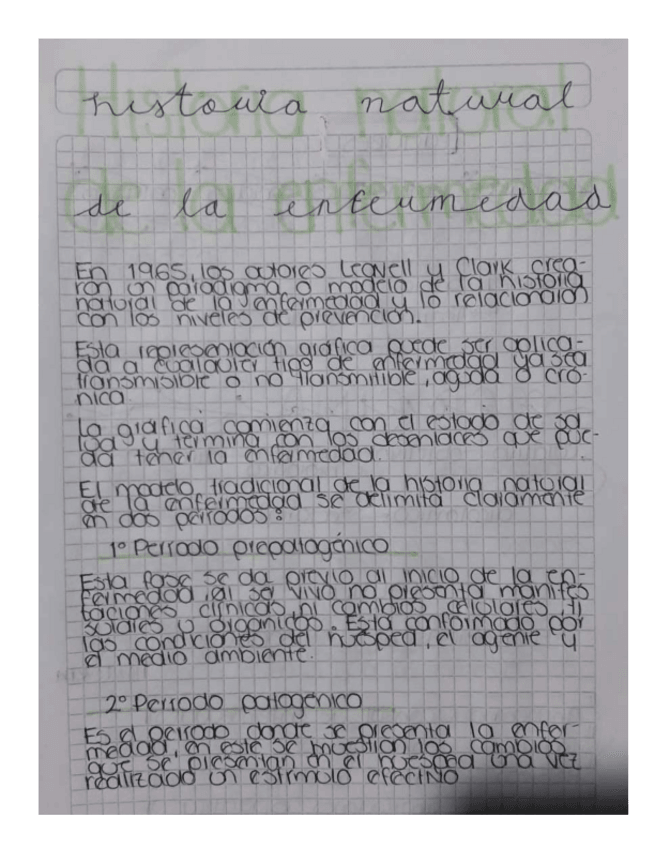 historia natural
de la enfermedad
En 1965, los autores Leavell y Clark crea-
ron un paradigma o modelo de la historia
natural de la enfermedad y lo relacionaron
con los niveles de prevención.
Esta representación gráfica puede ser aplica-
da a cualquier tipo de enfermedad ya sea
transmisible o no transmisible, aguda o cró-
nica
La gráfica comienza con el estado de sa-
lud y termina con los desenlaces que pue-
da tener la enfermedad.
El modelo tradicional de la historia natural
de la enfermedad se delimita claramente
en dos periodos:
1° Periodo prepatogénico
Esta fase se da previo al inicio de la en-
fermedad, el ser vivo no presenta manifes
taciones clínicas, ni cambios celulares, ti
sulares u orgánicos. Está conformado por
las condiciones del huésped, el agente y
el medio ambiente.
2° Periodo patogénico
Es el periodo donde se presenta la enfer-
medad, en este se muestran los cambios
que se presentan en el huésped una vez
realizado un estímulo efectivo